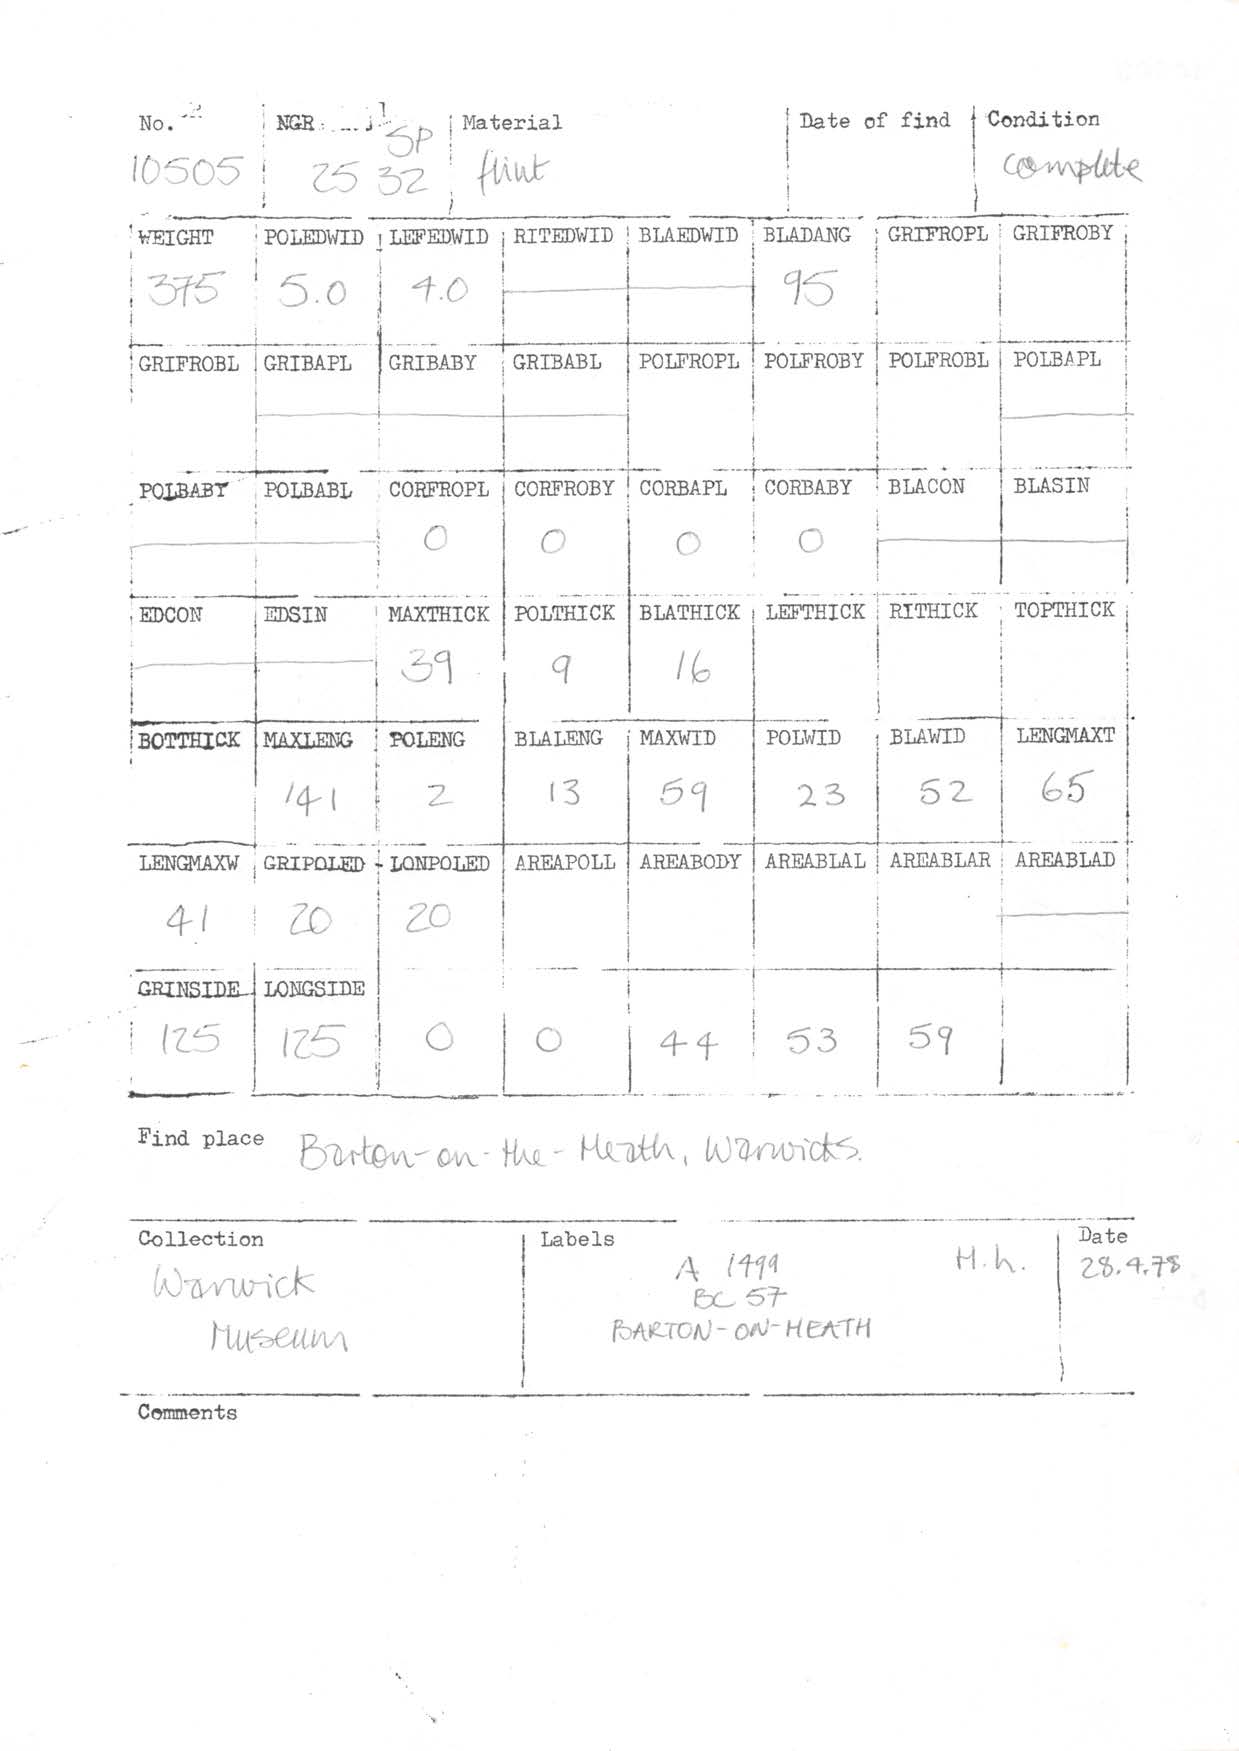 No. NGR Material Date of find Condition
10505 SP 25 32 flint complete
WEIGHT POLEDWID LEFEDWID RITEDWID BLAEDWID BLADANG GRIFROPL GRIFROBY
375 5.0 4.0 95
GRIFROBL GRIBAPL GRIBABY GRIBABL POLFROPL POLFROBY POLFROBL POLBAPL
POLBABY POLBABL CORFROPL CORFROBY CORBAPL CORBABY BLACON BLASIN
0 0 0 0
EDCON EDSIN MAXTHICK POLTHICK BLATHICK LEFTHICK RITHICK TOPTHICK
39 9 16
BOTTHICK MAXLENG POLENG BLALENG MAXWID POLWID BLAWID LENGMAXT
141 2 13 59 23 52 65
LENGMAXW GRIPOLED LONPOLED AREAPOLL AREABODY AREABLAL AREABLAR AREABLAD
41 20 20
GRINSIDE LONGSIDE
125 125 0 0 44 53 59
Find place Barton-on-the-Heath, Warwicks.
Collection Labels Date
Warwick Museum
A 1499 H.h. 28.4.78
BC 57
BARTON-ON-HEATH
Comments